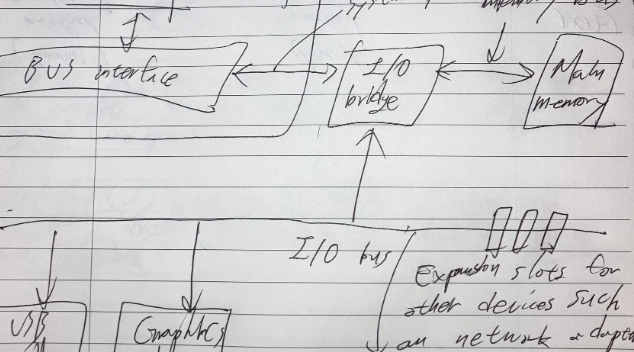 BUS interface
I/O
bridge
Main
memory
I/O bus
Expansion slots for
other devices such
an network
USB
Graphics